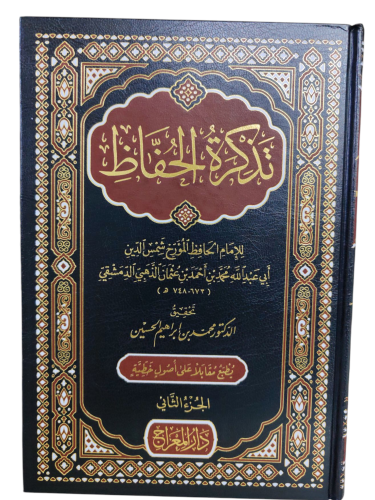 تذكرة الحفاظ
للإمام الحافظ المؤرخ شمس الدين
أبي عبد الله محمد بن أحمد بن عثمان الذهبي الدمشقي
(٦٧٣-٧٤٨ هـ)
تحقيق
الدكتور محمد بن إبراهيم الحسين
يطبع مقابلا على أصول خطية
الجزء الثاني
دار المعراج